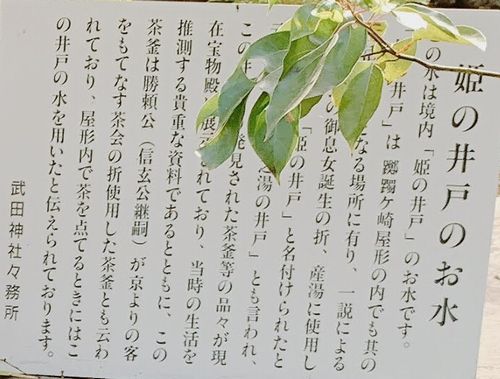 姫の井戸のお水
の水は境内「姫の井戸」のお水です。
井戸」は躑躅ヶ崎屋形の内でも其の
なる場所に有り、一説による
の御息女誕生の折、産湯に使用し
「姫の井戸」と名付けられたと
湯の井戸」とも言われ、
この 発見された茶釜等の品々が現
在宝物殿 展 れており、当時の生活を
推測する貴重な資料であるとともに、この
茶釜は勝頼公（信玄公継嗣）が京よりの客
をもてなす茶会の折使用した茶釜とも云わ
れており、屋形内で茶を点てるときにはこ
の井戸の水を用いたと伝えられております。
武田神社々務所